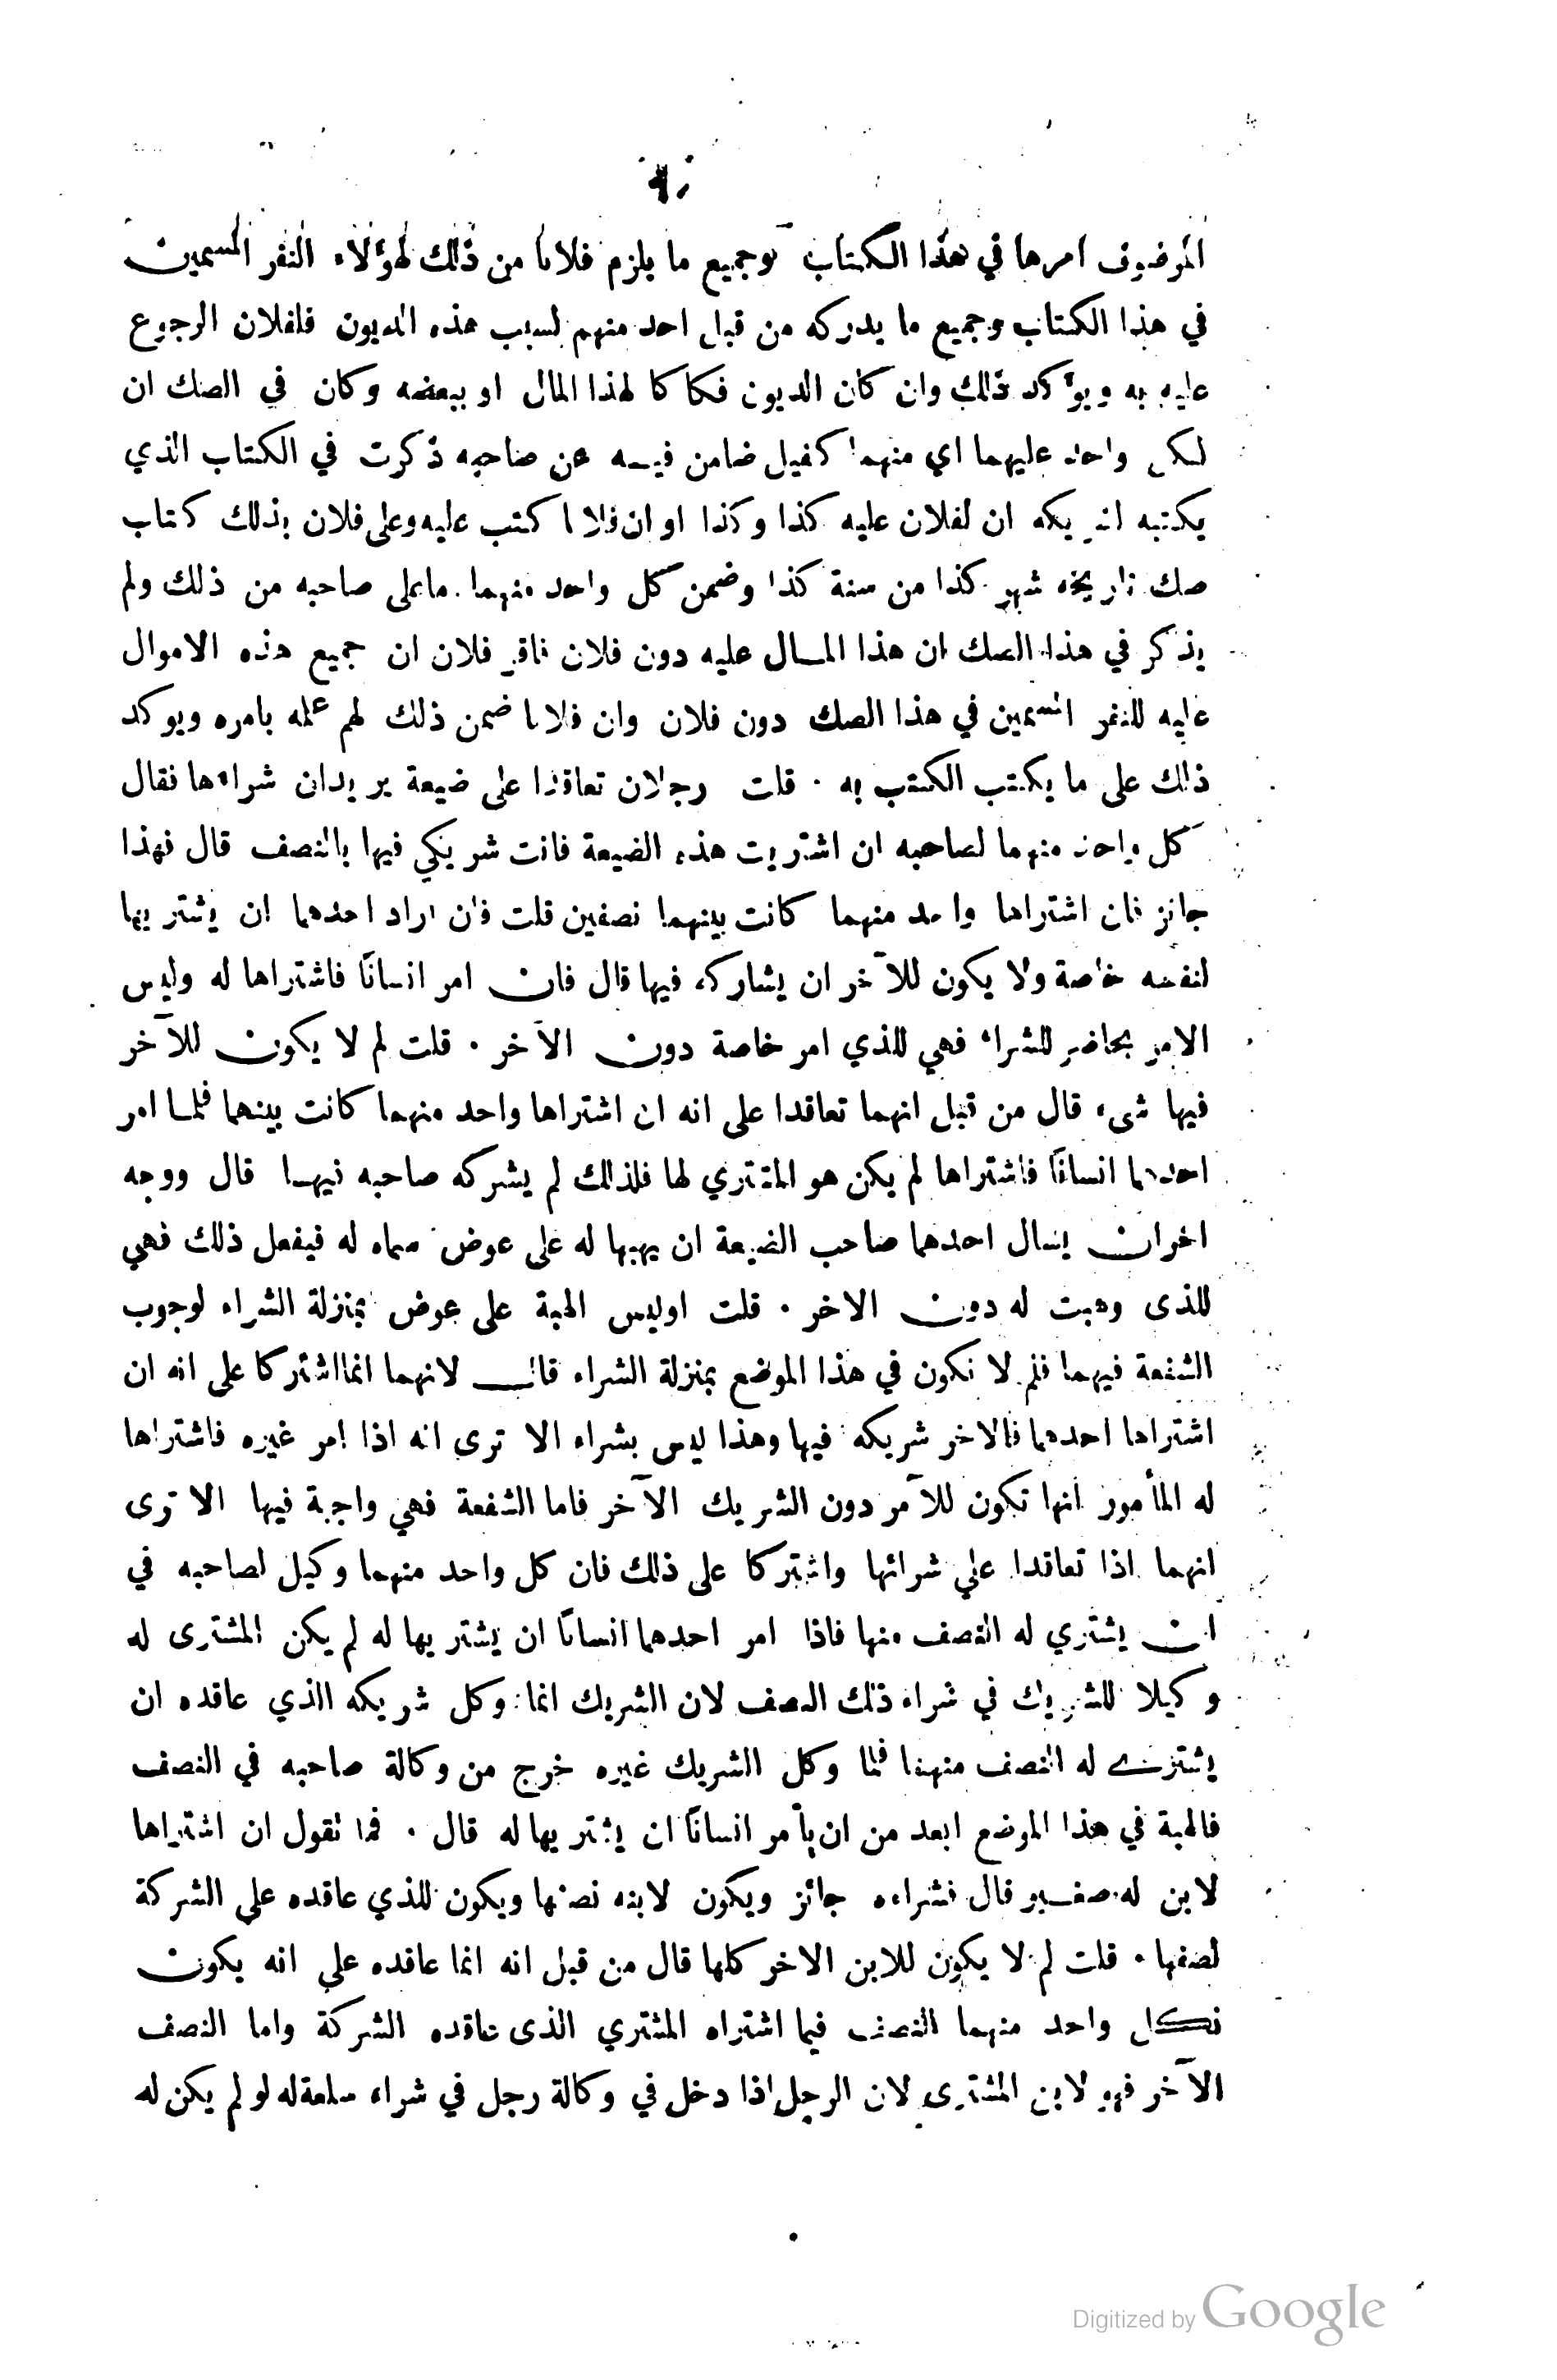 الموصوف امرها في هذا الكتاب وجميع ما يلزم فلانا من ذلك لهؤلاء النفر المسمين
في هذا الكتاب وجميع ما يدركه من قبل احد منهم بسبب هذه الديون فلفلان الرجوع
عليه به ويؤكد ذلك وان كان الديون فكاكا لهذا المال او ببعضه وكان في الصك ان
لكل واحد عليهما اي منهما كفيل ضامن فيه عن صاحبه ذكرت في الكتاب الذي
يكتبه لشريكه ان لفلان عليه كذا وكذا او ان فلانا كتب عليه وعلى فلان بذلك كتاب
صك تاريخه شهر كذا من سنة كذا وضمن كل واحد منهما ما على صاحبه من ذلك ولم
يذكر في هذا الصك ان هذا المال عليه دون فلان فاقر فلان ان جميع هذه الاموال
عليه للنفر المسمين في هذا الصك دون فلان وان فلانا ضمن ذلك لهم عنه بامره ويوكد
ذلك على ما يكتب الكتب به ٠ قلت رجلان تعاقدا على ضيعة يريدان شراءها فقال
كل واحد منهما لصاحبه ان اشتريت هذه الضيعة فانت شريكي فيها بالنصف قال فهذا
جائز فان اشتراها واحد منهما كانت بينهما نصفين قلت فان اراد احدهما ان يشتريها
لنفسه خاصة ولا يكون للآخر ان يشاركه فيها قال فان امر انسانًا فاشتراها له وليس
الامر بحاضر للشراء فهي للذي امر خاصة دون الآخر ٠ قلت لم لا يكون للآخر
فيها شيء قال من قبل انهما تعاقدا على انه ان اشتراها واحد منهما كانت بينهما فلما امر
احدهما انسانًا فاشتراها لم يكن هو المشتري لها فلذلك لم يشركه صاحبه فيها قال ووجه
اخران يسال احدهما صاحب الضيعة ان يهبها له على عوض سماه له فيفعل ذلك فهي
للذى وهبت له دون الاخر ٠ قلت اوليس الهبة على عوض بمنزلة الشراء لوجوب
الشفعة فيهما فلم لا تكون في هذا الموضع بمنزلة الشراء قال لانهما انمااشتركا على انه ان
اشتراها احدهما فالاخر شريكه فيها وهذا ليس بشراء الا ترى انه اذا امر غيره فاشتراها
له المأمور انها تكون للآمر دون الشريك الآخر فاما الشفعة فهي واجبة فيها الا ترى
انهما اذا تعاقدا علي شرائها واشتركا على ذلك فان كل واحد منهما وكيل لصاحبه في
ان يشتري له النصف منها فاذا امر احدهما انسانًا ان يشتريها له لم يكن المشترى له
وكيلا للشريك في شراء ذلك النصف لان الشريك انما وكل شريكه الذي عاقده ان
يشتري له النصف منها فلما وكل الشريك غيره خرج من وكالة صاحبه في النصف
فالهبة في هذا الموضع ابعد من ان يأمر انسانًا ان يشتريها له قال ٠ فما تقول ان اشتراها
لابن له صغير قال فشراءه جائز ويكون لابنه نصفها ويكون للذي عاقده علي الشركة
نصفها ٠ قلت لم لا يكون للابن الاخر كلها قال من قبل انه انما عاقده علي انه يكون
لكل واحد منهما النصف فيما اشتراه المشتري الذى عاقده الشركة واما النصف
الآخر فهو لابن المشتري لان الرجل اذا دخل في وكالة رجل في شراء سلعة له لو لم يكن له
Digitized by Google